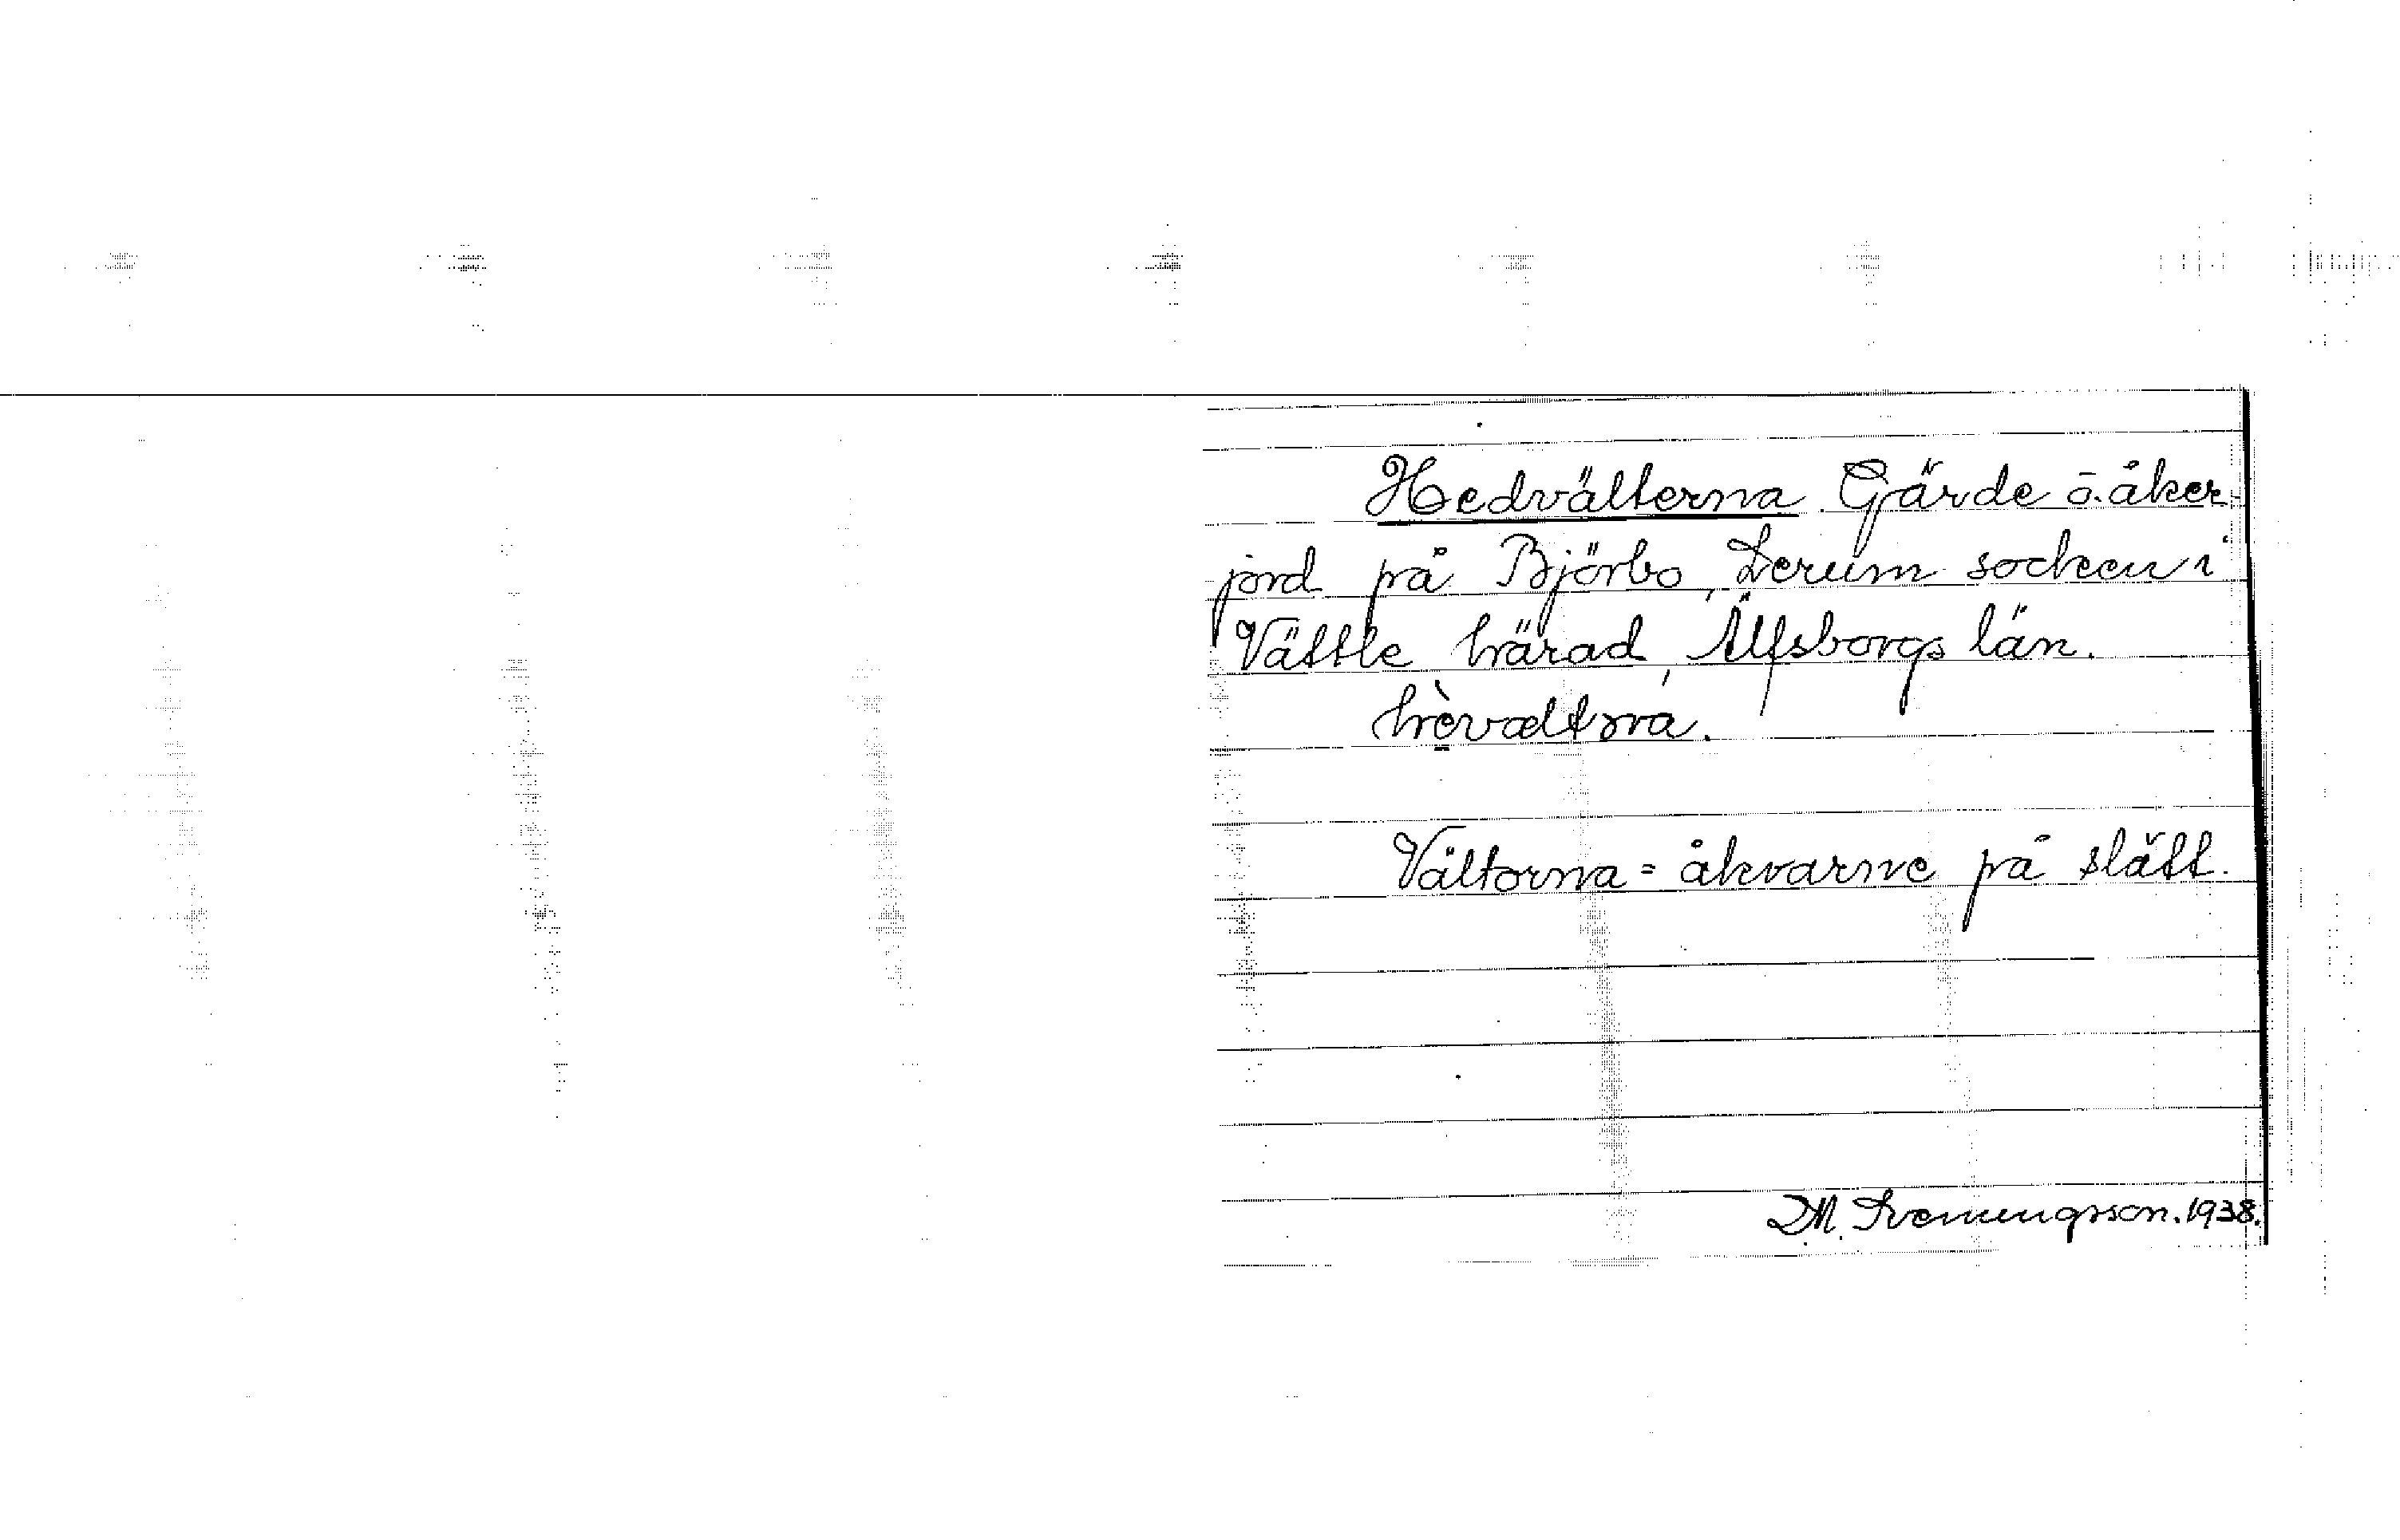 Hedvälterna. Gärde o. åker-
jord på Björbo, Lerum socken i
Vättle härad, Älfsborgs län.
hèvæltɔrna.
Vältorna = åkvarne på slätt.
D.M. Svenungsson. 1938.